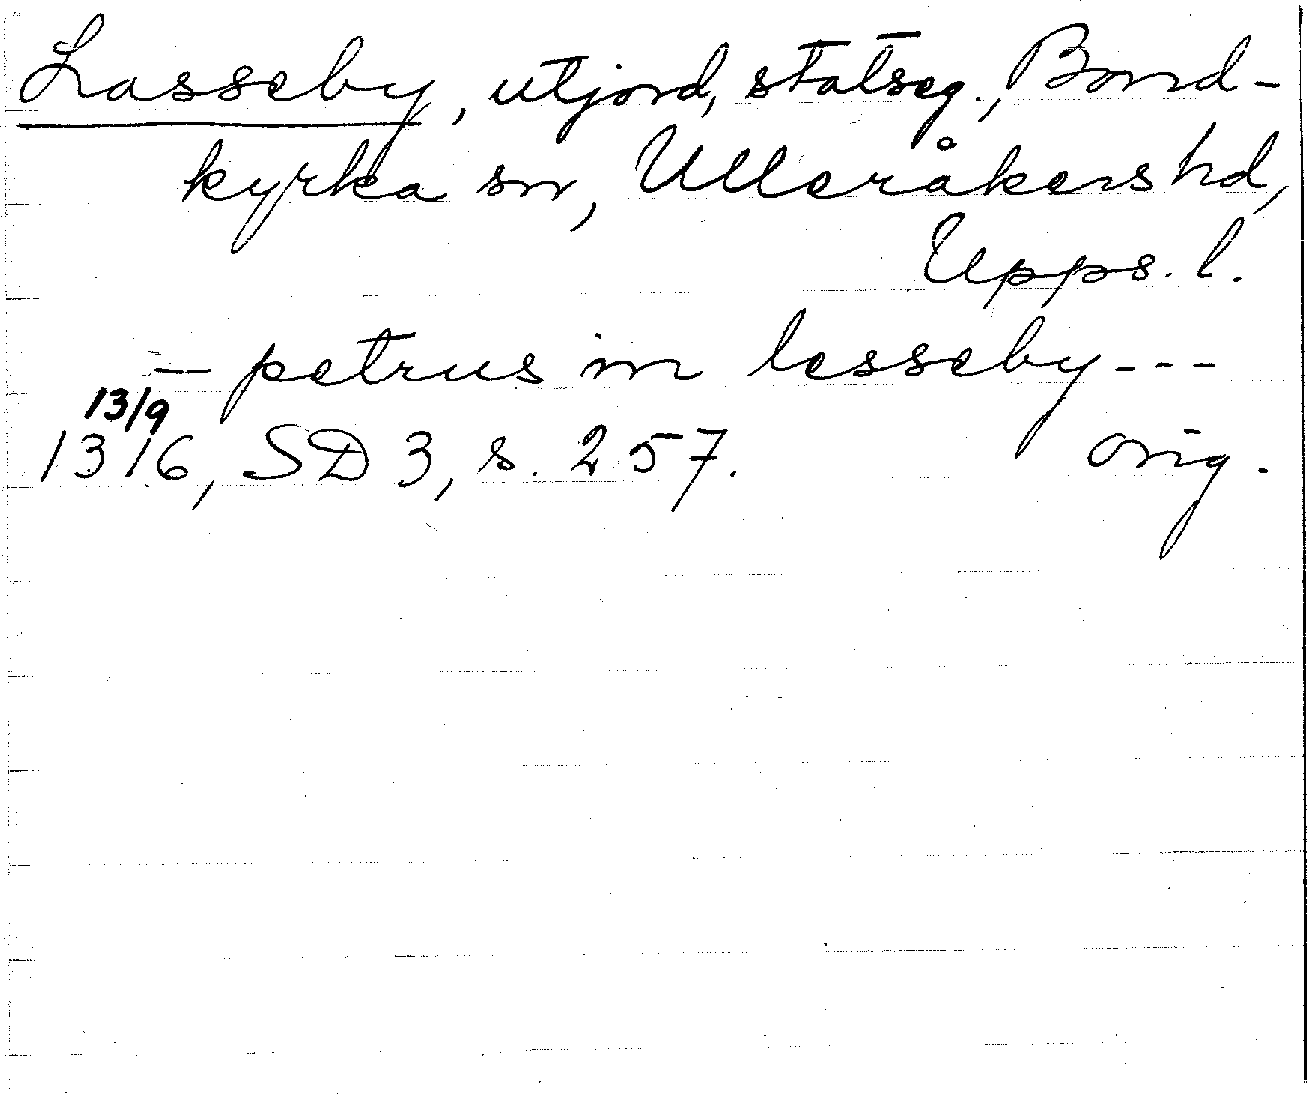 Lasseby, utjord, statseg., Bond-
kyrka sn, Ulleråkers hd,
Upps. l.
— petrus in lesseby ---
13/9
1316, SD 3, s. 257. orig.